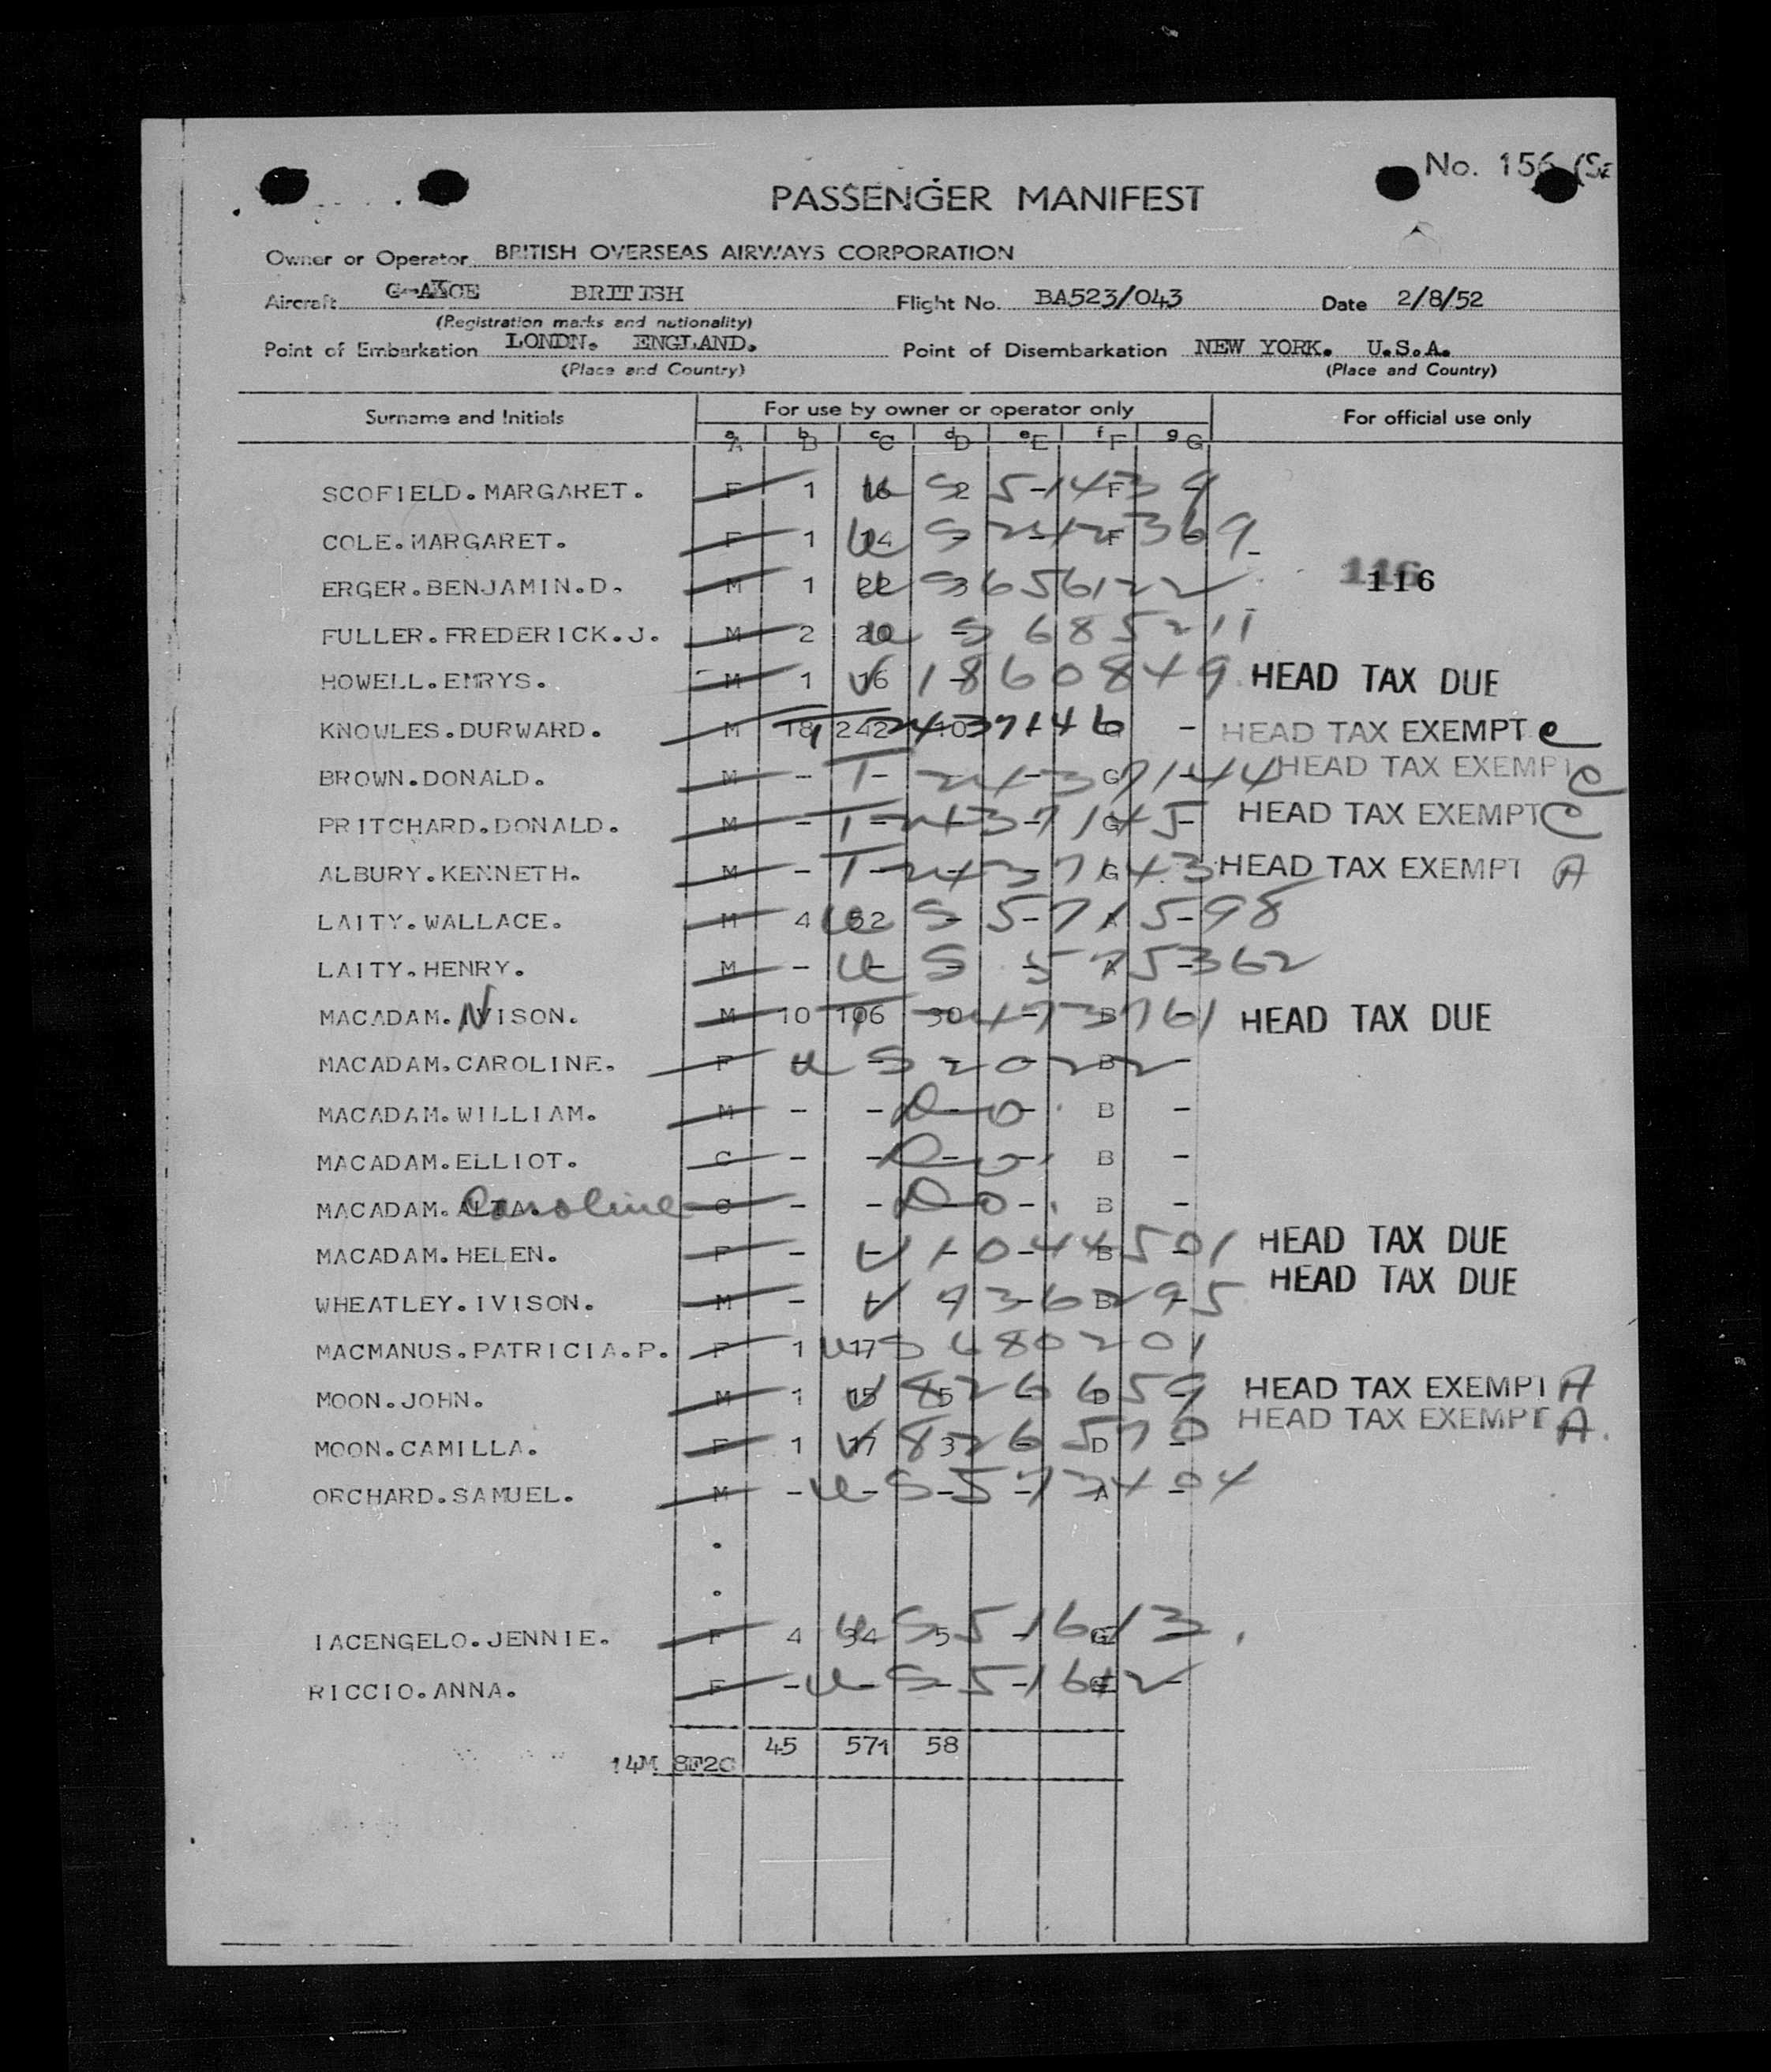 No. 156
PASSENGER MANIFEST
Owner or Operator BRITISH OVERSEAS AIRWAYS CORPORATION
Aircraft BRITISH Flight No. BA523/043 Date 2/8/52
(Registration marks and nationality)
Point of Embarkation LONDN. ENGLAND. Point of Disembarkation NEW YORK. U.S.A.
(Place and Country) (Place and Country)
Surname and Initials For use by owner or operator only For official use only
a b c d e f g
A B C D E F G
SCOFIELD.MARGARET. F 1 16 2 - F - US 51439
COLE.MARGARET. F 1 14 - - F - US 242369
ERGER.BENJAMIN.D. M 1 22 3 US 656122 116
FULLER.FREDERICK.J. M 2 20 - US 685211
HOWELL.EMRYS. M 1 16 - V 1860849 HEAD TAX DUE
KNOWLES.DURWARD. M 18 242 10 - G - T 2437146 HEAD TAX EXEMPT C
BROWN.DONALD. M - - - - G - T 2437144 HEAD TAX EXEMPT C
PRITCHARD.DONALD. M - - - - G - T 2437145 HEAD TAX EXEMPT C
ALBURY.KENNETH. M - - - - G T 2437143 HEAD TAX EXEMPT A
LAITY.WALLACE. M 4 52 - - A - US 571598
LAITY.HENRY. M - - - - A - US 575362
MACADAM.IVISON. M 10 106 30 - B HEAD TAX DUE
MACADAM.CAROLINE. F - - - - B - US 2022
MACADAM.WILLIAM. M - - - - B - Do
MACADAM.ELLIOT. C - - - - B - Do
MACADAM. Caroline C - - - - B - Do
MACADAM.HELEN. F - - - - B - V 1044501 HEAD TAX DUE
WHEATLEY.IVISON. M - - - - B - V 9362295 HEAD TAX DUE
MACMANUS.PATRICIA.P. F 1 17 US 680201
MOON.JOHN. M 1 15 5 - D - V 826659 HEAD TAX EXEMPT A
MOON.CAMILLA. F 1 17 3 - D - V 826570 HEAD TAX EXEMPT A.
ORCHARD.SAMUEL. M - - - - A - US 573404
.
.
IACENGELO.JENNIE. F 4 34 5 - G - US 51613
RICCIO.ANNA. F - - - - - US 51612
45 571 58
14M 8F2C